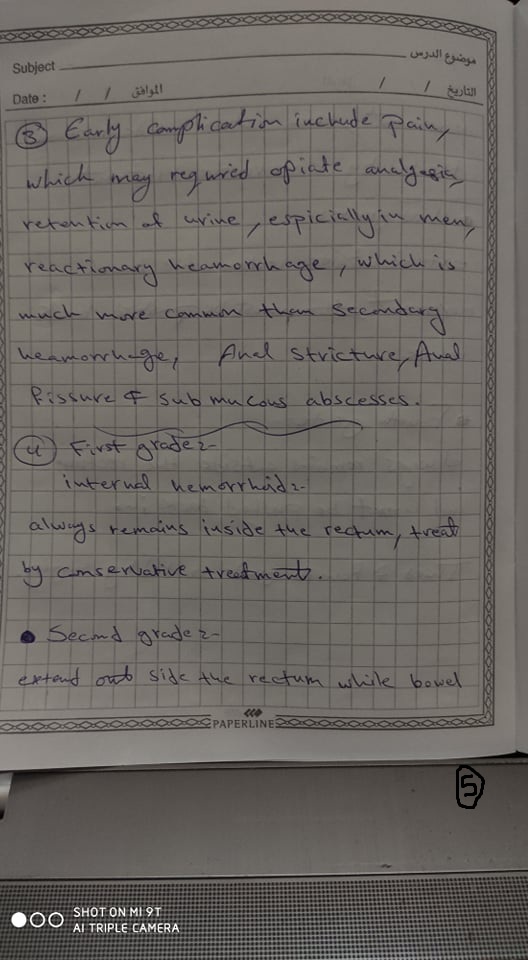 Subject موضوع الدرس
Date : / / الموافق / / التاريخ
3 Early complication include Pain,
which may required opiate analgesia,
retention of urine, espicially in men,
reactionary heamorrhage, which is
much more common than secondary
heamorrhage, Anal stricture, Anal
fissure & sub mucous abscesses.
4 First grade:-
internal hemorrhoid:-
always remains inside the rectum, treat
by conservative treatment.
• Second grade:-
extend out side the rectum while bowel
PAPERLINE
5
SHOT ON MI 9T
AI TRIPLE CAMERA